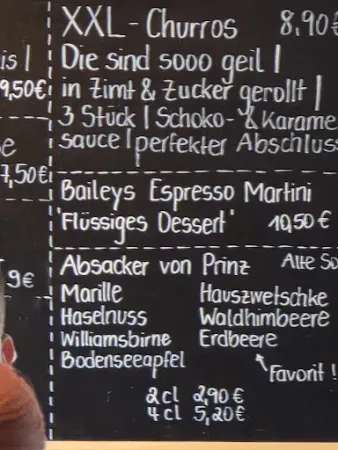 XXL-Churros 8,90€
is |
Die sind sooo geil |
9,50€
in Zimt & Zucker gerollt |
3 Stück | Schoko- & Karame
sauce | perfekter Abschluss
7,50€
Baileys Espresso Martini
'Flüssiges Dessert' 10,50€
Absacker von Prinz Alte So
9€
Marille Hauszwetschke
Haselnuss Waldhimbeere
Williamsbirne Erdbeere
Bodenseeapfel
Favorit!
2cl 2,90€
4cl 5,20€